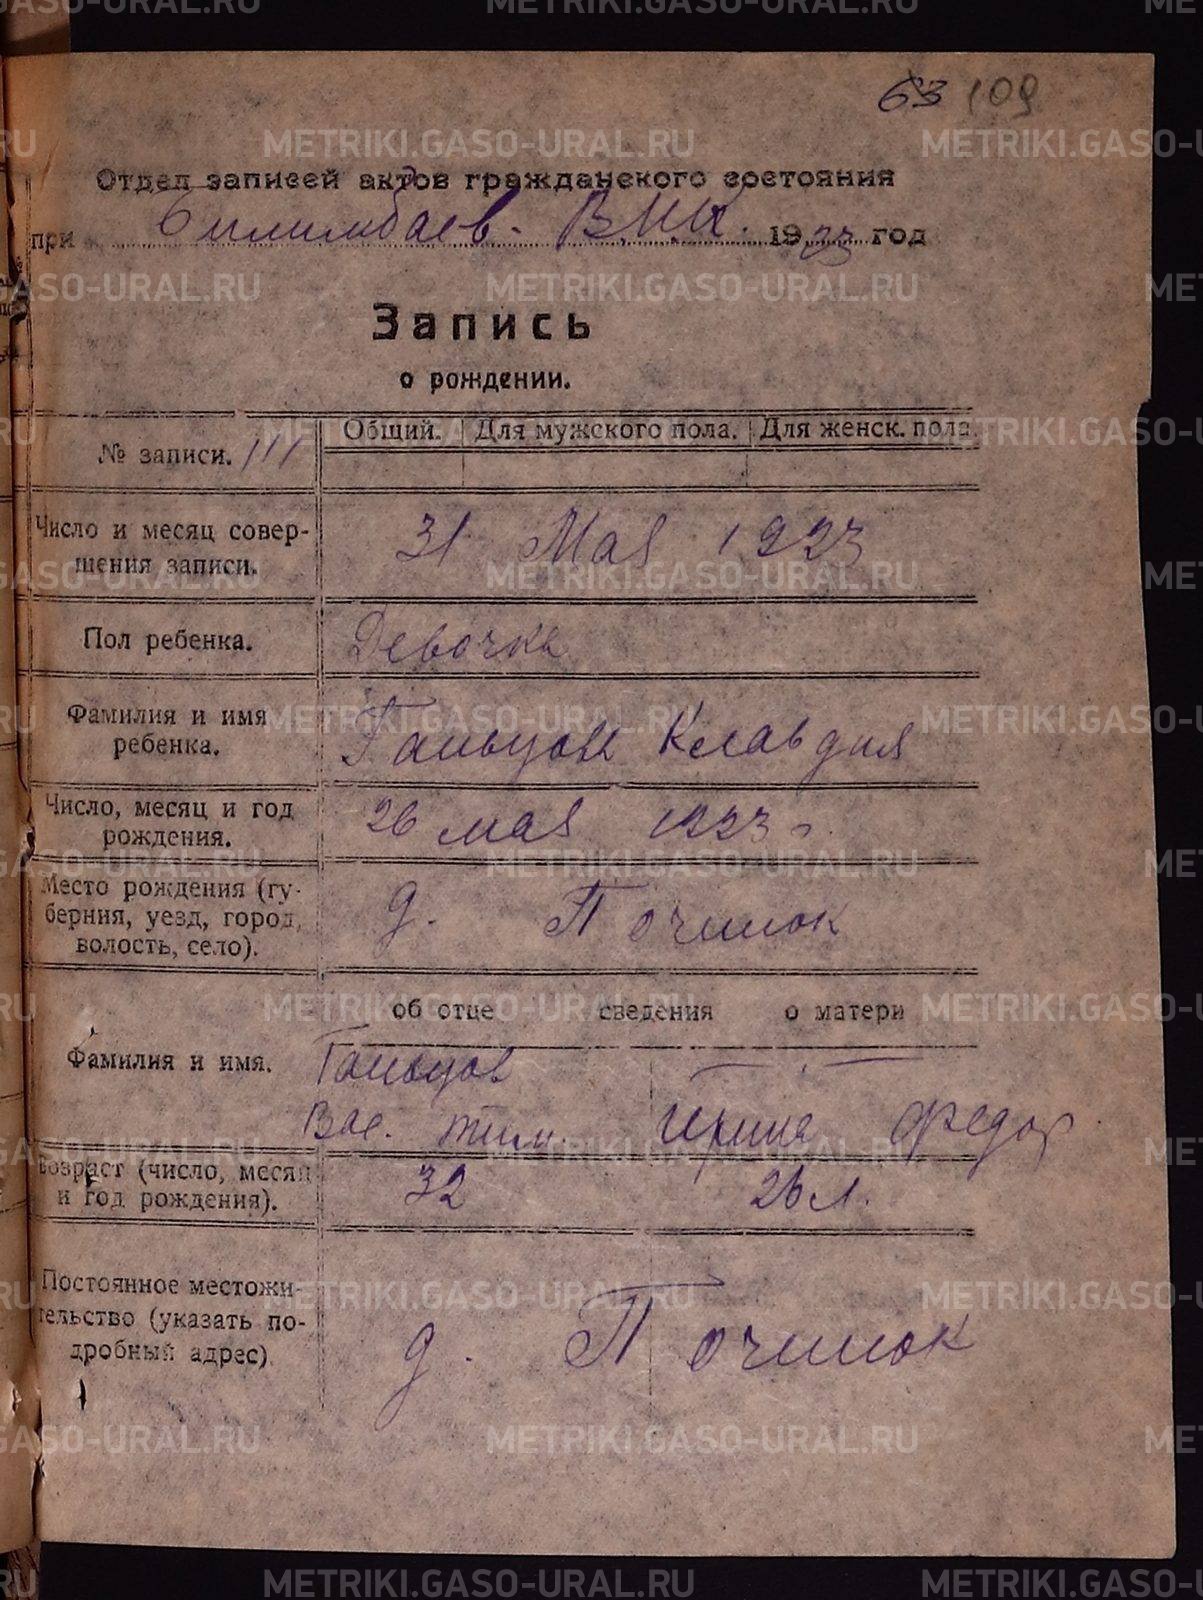 63 109
Отдел записей актов гражданского состояния
при Билимбаев. В.И.К. 1923 год
Запись
о рождении.
Общий. Для мужского пола. Для женск. пола.
№ записи. 111
Число и месяц совер-
шения записи.
31 Мая 1923
Пол ребенка.
Девочка
Фамилия и имя
ребенка.
Гальцов Клавдия
Число, месяц и год
рождения.
26 мая 1923 г.
Место рождения (гу-
берния, уезд, город,
волость, село).
д. Починок
об отце сведения о матери
Фамилия и имя.
Гальцов
Вас. Тим. Ирина Федор.
Возраст (число, месяц
и год рождения).
32 26 л.
Постоянное местожи-
тельство (указать по-
дробный адрес)
д. Починок
METRIKI.GASO-URAL.RU